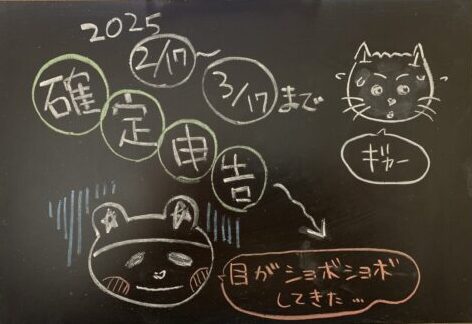 2025
2/17～
3/17まで
確定申告
ギャー
目がショボショボ
してきた…